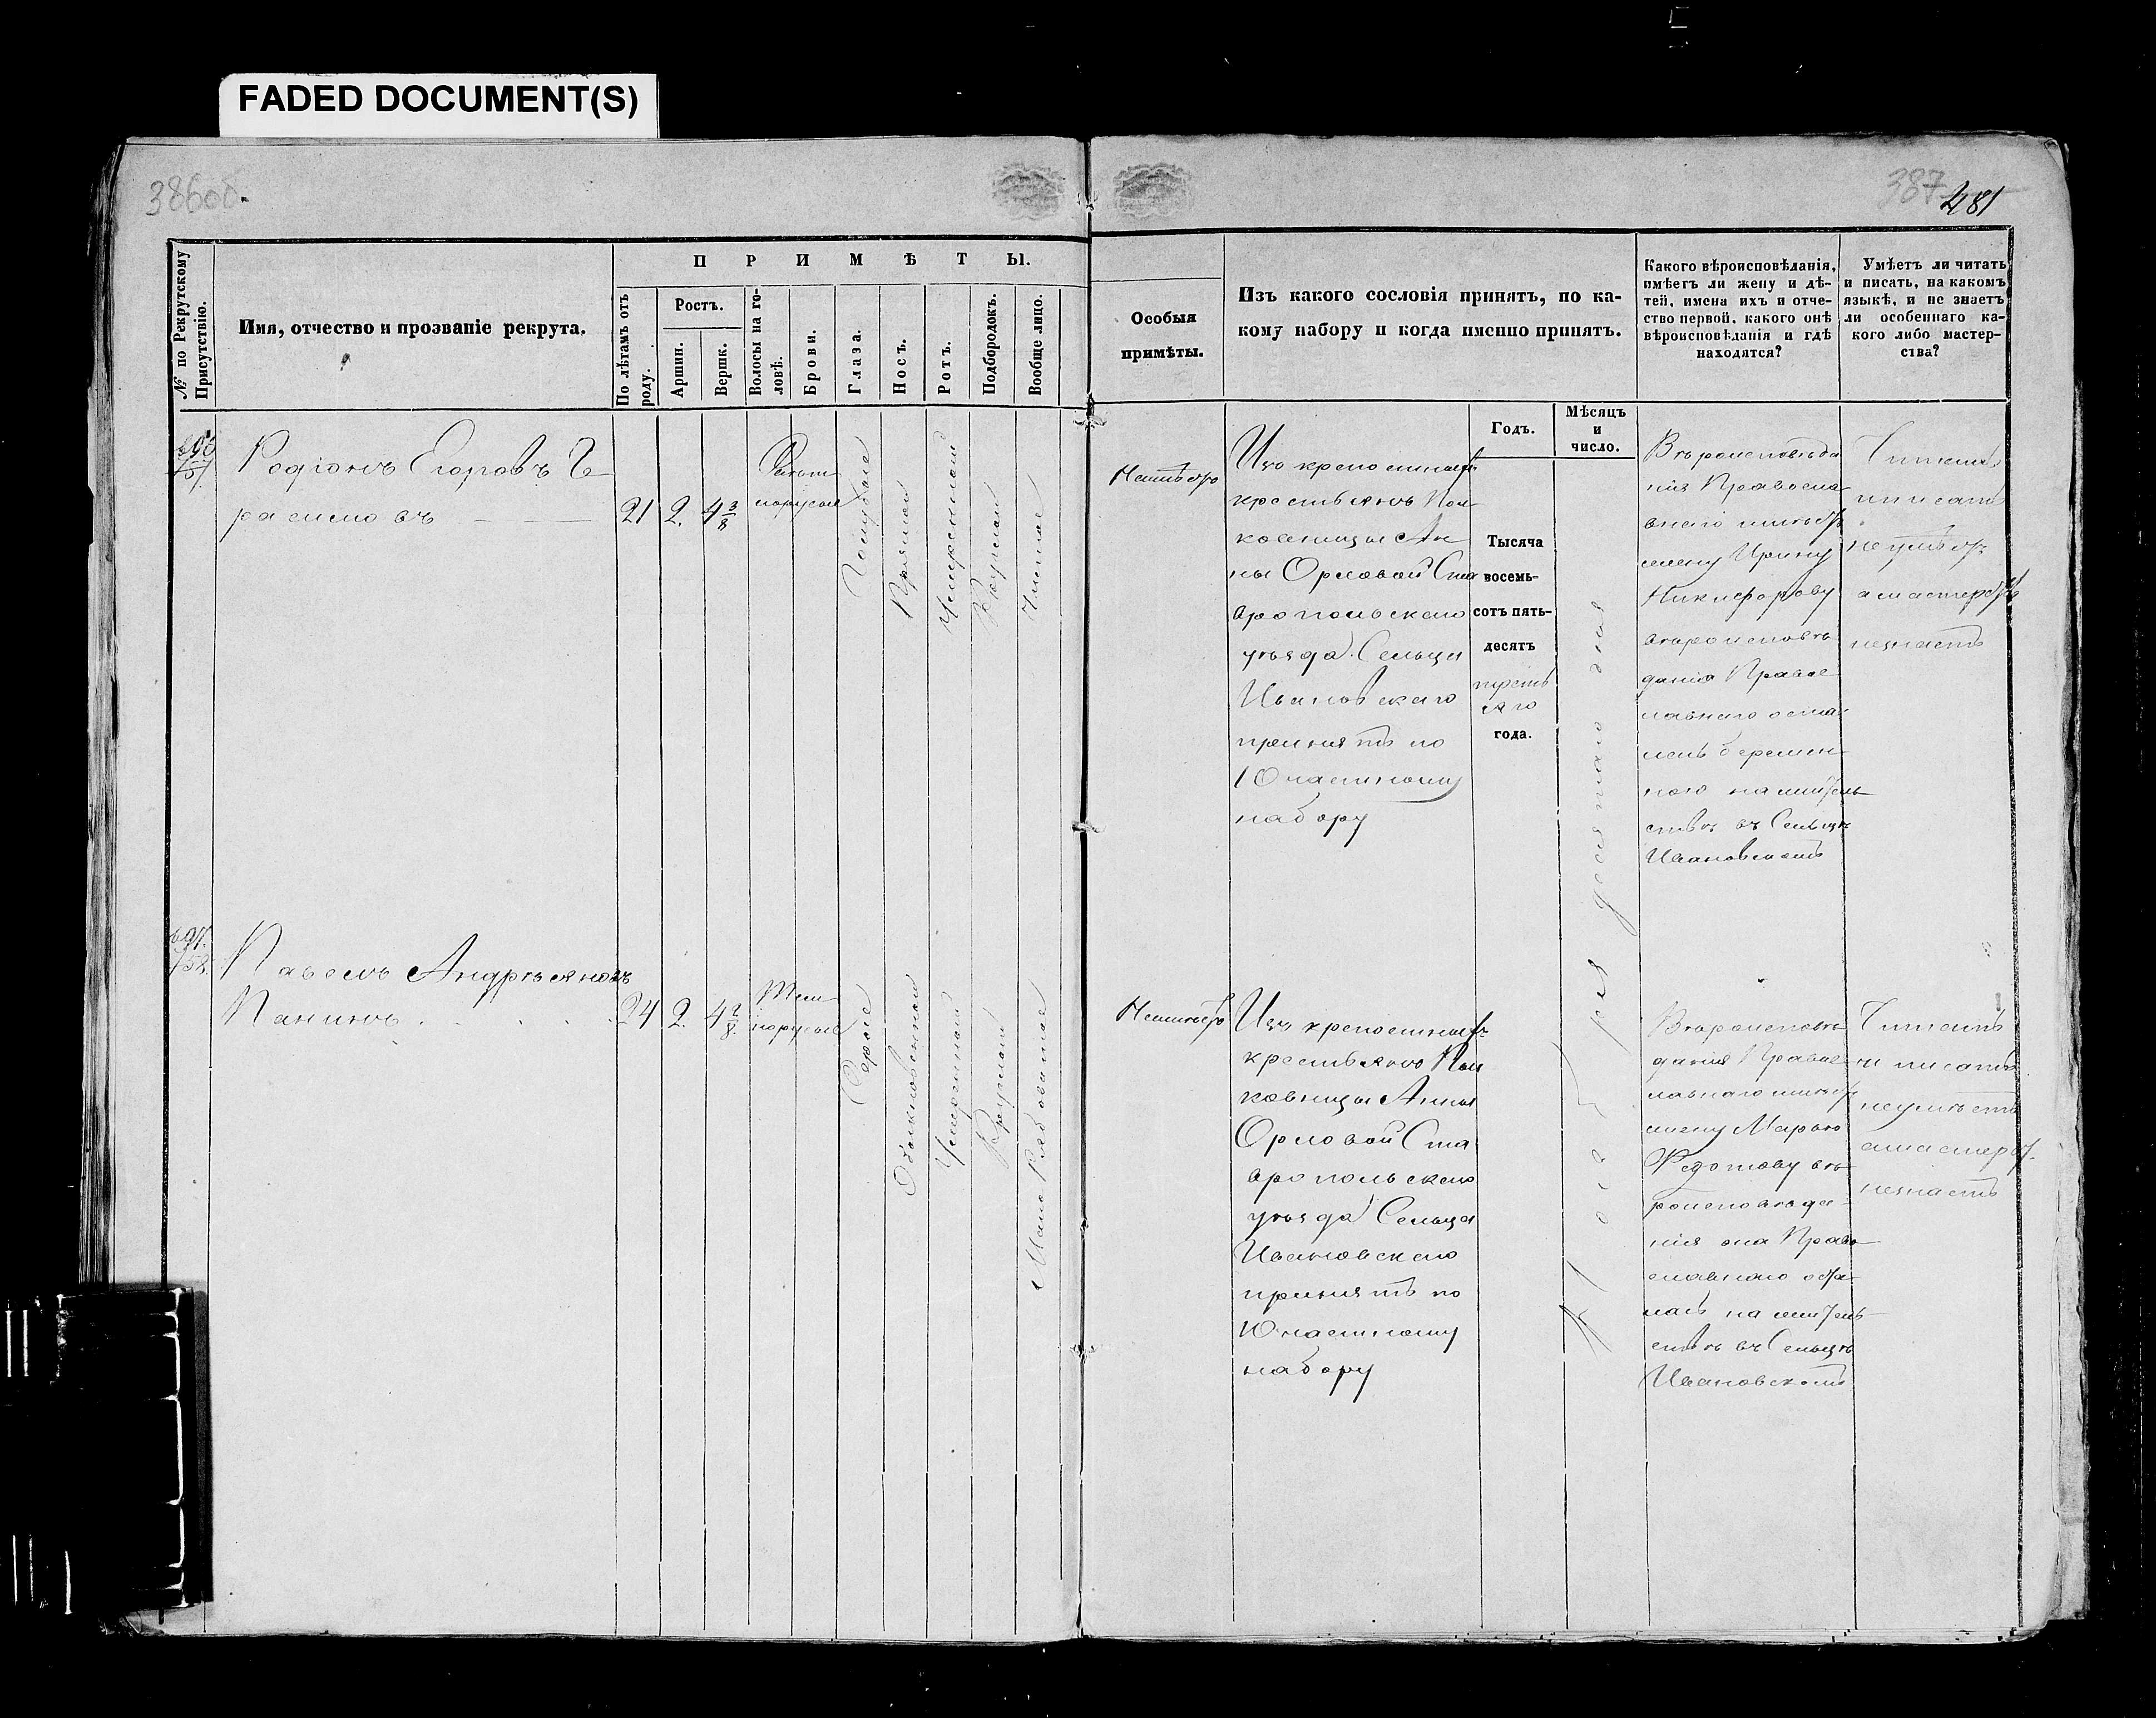 FADED DOCUMENT(S)
386об.
387
481
№ по Рекрутскому Присутствію.
Имя, отчество и прозваніе рекрута.
ПРИМѢТЫ.
По лѣтамъ отъ роду.
Ростъ.
Аршин.
Вершк.
Волосы на головѣ.
Брови.
Глаза.
Носъ.
Ротъ.
Подбородокъ.
Вообще лицо.
Особыя
примѣты.
Изъ какого сословія принятъ, по ка-
кому набору и когда именно принятъ.
Какого вѣроисповѣданія,
имѣетъ ли жену и дѣ-
тей, имена ихъ и отче-
ство первой, какого онѣ
вѣроисповѣданія и гдѣ
находятся?
Умѣетъ ли читать
и писать, на какомъ
языкѣ, и не знаетъ
ли особеннаго ка-
кого либо мастер-
ства?
Годъ.
Мѣсяцъ
и
число.
696
757
Родіонъ Егоровъ Ге-
расимовъ
21
2.
4 3/8
Свѣтло
русые
Голубые
Прямой
Умеренной
Круглой
Чистое
Неимѣетъ
Изъ крепостныхъ
крестьянъ Пол-
ковницы Ан-
ны Орловой Ста
вропольскаго
уѣзда Сельца
Ивановскаго
принятъ по
10 частному
набору
Тысяча
восемь-
сотъ пять-
десятъ
третьяго
года.
десятаго дня
Вѣроисповѣда
нія Правосла-
внаго имѣетъ
жену Ирину
Никифорову
вѣроисповѣ-
данія Правос-
лавнаго оста-
лась беремен-
ною на житель
ствѣ въ Сельцѣ
Ивановскомъ
Читать
и писать
не умѣетъ
а мастерства
незнаетъ
697.
758.
Павелъ Андрѣяновъ
Панинъ
24
2.
4 2/8.
Тем-
норусые
Серые
Обыкновенной
Умеренной
Круглой
Мало Рябоватое
Неимѣетъ
Изъ крепостныхъ
крестьянъ Пол
ковницы Анны
Орловой Ста
вропольскаго
уѣзда Сельца
Ивановскаго
принятъ по
10 частному
набору
Вѣроисповѣ-
данія Правос-
лавнаго имѣетъ
жену Марью
Федотову вѣ-
роисповѣда-
нія она Право
славнаго оста-
лась на житель-
ствѣ въ Сельцѣ
Ивановскомъ
Читать
и писать
неумѣетъ
а мастерст.
незнаетъ